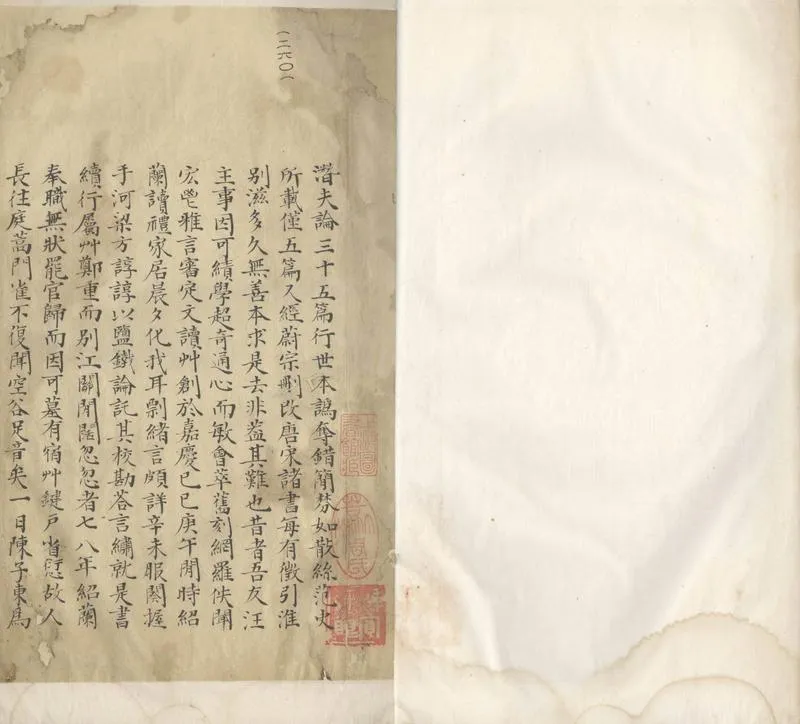 (二六〇)
潛夫論三十五篇行世本譌奪錯簡棼如散絲范史
所載僅五篇又經蔚宗刪改唐宋諸書每有徵引淮
別滋多久無善本求是去非葢其難也昔者吾友汪
主事因可績學超奇通心而敏會萃舊刻網羅佚聞
宏鬯雅言審定文讀艸創於嘉慶己巳庚午閒時紹
蘭讀禮家居晨夕化我耳剽緒言頗詳辛未服闋握
手河梁方諄諄以鹽鐵論託其校勘荅言繡就是書
續行屬艸鄭重而別江關閒闊忽忽者七八年紹蘭
奉職無狀罷官歸而因可墓有宿艸鍵戶眚愆故人
長往庭蒿門雀不復聞空谷足音矣一日陳子東為